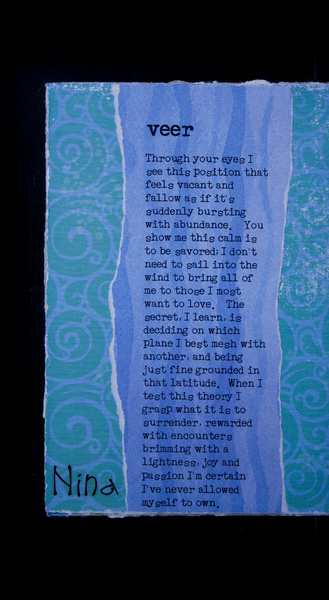 veer
Through your eyes I
see this position that
feels vacant and
fallow as if it's
suddenly bursting
with abundance. You
show me this calm is
to be savored; I don't
need to sail into the
wind to bring all of
me to those I most
want to love. The
secret, I learn, is
deciding on which
plane I best mesh with
another, and being
just fine grounded in
that latitude. When I
test this theory I
grasp what it is to
surrender, rewarded
with encounters
brimming with a
lightness, joy and
passion I'm certain
I've never allowed
myself to own.
Nina